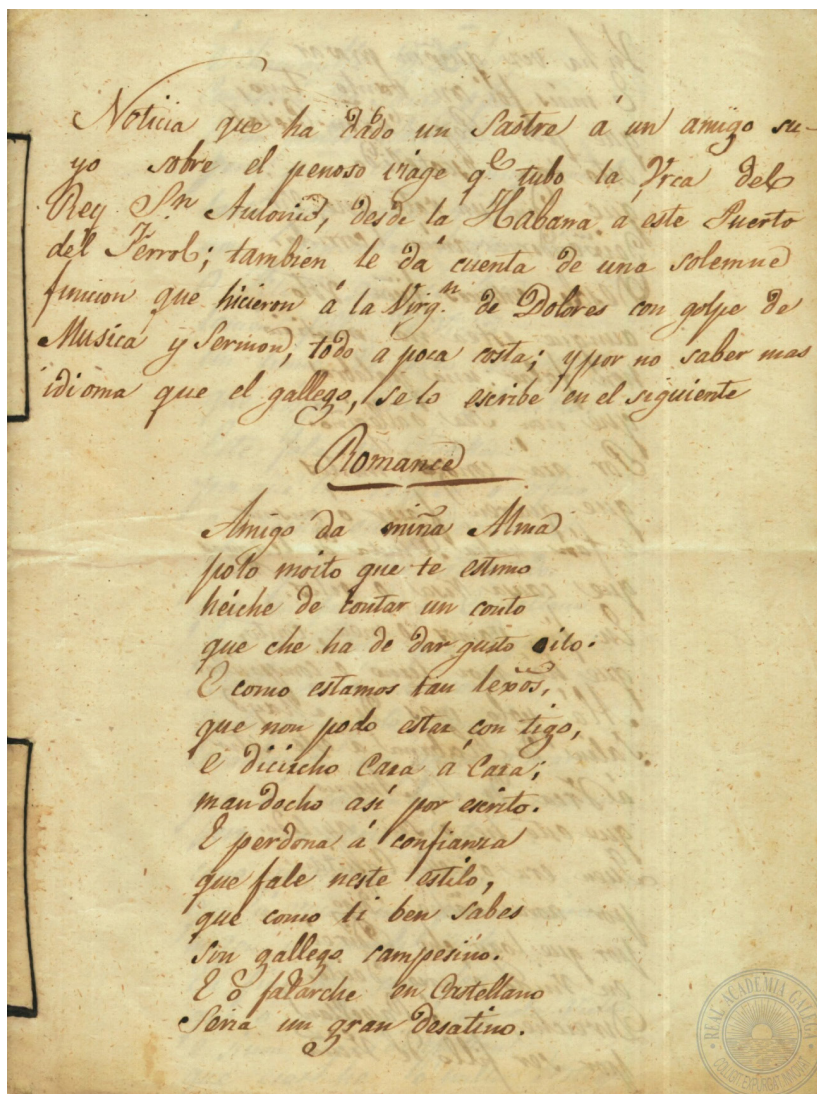 Noticia que ha dado un Sastre á un amigo su-
yo sobre el penoso viage qe tubo la Vrca del
Rey Sn Antonio, desde la Habana a este Puerto
del Ferrol; tambien le dá cuenta de una solemne
funcion que hicieron á la Virgn. de Dolores con golpe de
Musica y Sermon, todo a poca costa; y por no saber mas
idioma que el gallego, se lo escribe en el siguiente
Romance
Amigo da miña Alma
polo moito que te estimo
héiche de contar un conto
que che ha de dar gusto oilo.
E como estamos tan lexos,
que non podo estar con tigo,
e dicircho Cara á Cara;
mandocho así por escrito.
E perdona á confianza
que fale neste estilo,
que como ti ben sabes
son gallego campesino.
E o falarche en Castellano
Seria un gran desatino.
REAL ACADEMIA GALEGA
COLLIGIT EXPURGAT INNOVAT